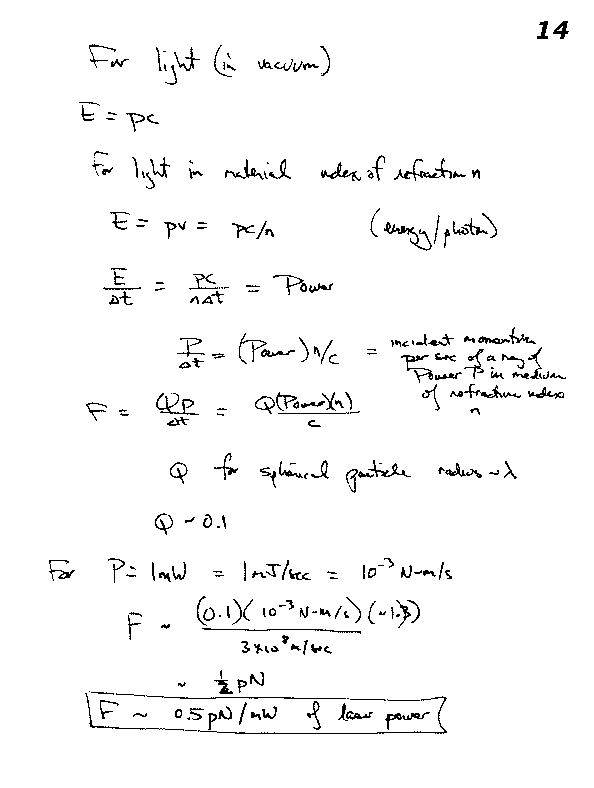 14
For light (in vacuum)
E = pc
For light in material index of refraction n
E = pv = pc/n (energy/photon)
E/Δt = pc/nΔt = Power
P/Δt = (Power) n/c = incident momentum
per sec of a ray of
Power P in medium
of refractive index
n
F = Qp/Δt = Q(Power)(n)/c
Q for spherical particle radius ~ λ
Q ~ 0.1
For P = 1mW = 1mJ/sec = 10⁻³ N-m/s
F ~ (0.1)(10⁻³ N-m/s)(~1.3)/3×10⁸ m/sec
~ ½ pN
F ~ 0.5 pN/mW of laser power